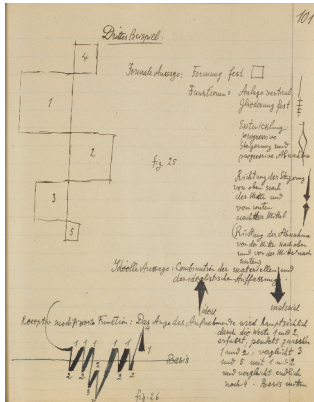 101
Drittes Beispiel.
4
Formale Aussage: Formung fest
Funktionen: Anlage vertical
Gliederung fest
1
Entwicklung:
progressive
Steigerung und
progressive Abnahme
2
fig 25
Richtung der Steigerung
von oben nach
der Mitte und
von unten
nach der Mitte
3
(Richtung der Abnahme
von der Mitte nach oben
und von der Mitte nach
unten)
5
Ideelle Aussage: Combination der materiellen und
der idealistischen Auffassung
ideal
materiel
Receptor modifizierte Function: Das Auge des Aufnehmenden wird hauptsächlich
durch die Werte 1 und 2
erfasst, pendelt zwischen
1 und 2, vergleicht 3
und 5 mit 1 und 2
und vergleicht endlich
noch 4. Basis mitten
4
1 1 1 1
Basis
2 2 2 2
3
5
fig. 26